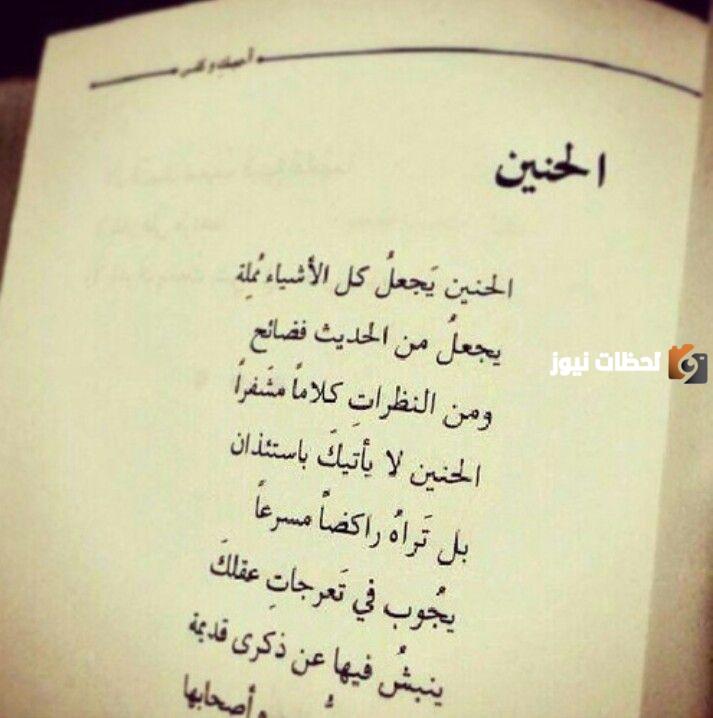 أحببتك وكفى
الحنين
الحنين يَجعلُ كل الأشياء مُملِة
يجعلُ من الحديث فضائح
ومن النظراتِ كلاماً مشَفراً
الحنين لا يأتيكَ باستئذان
بل تَراهُ راكضاً مسرعاً
يجُوب في تَعرجاتِ عقلكَ
ينبشُ فيها عن ذكرى قديمة
وأصحابها
لحظات نيوز